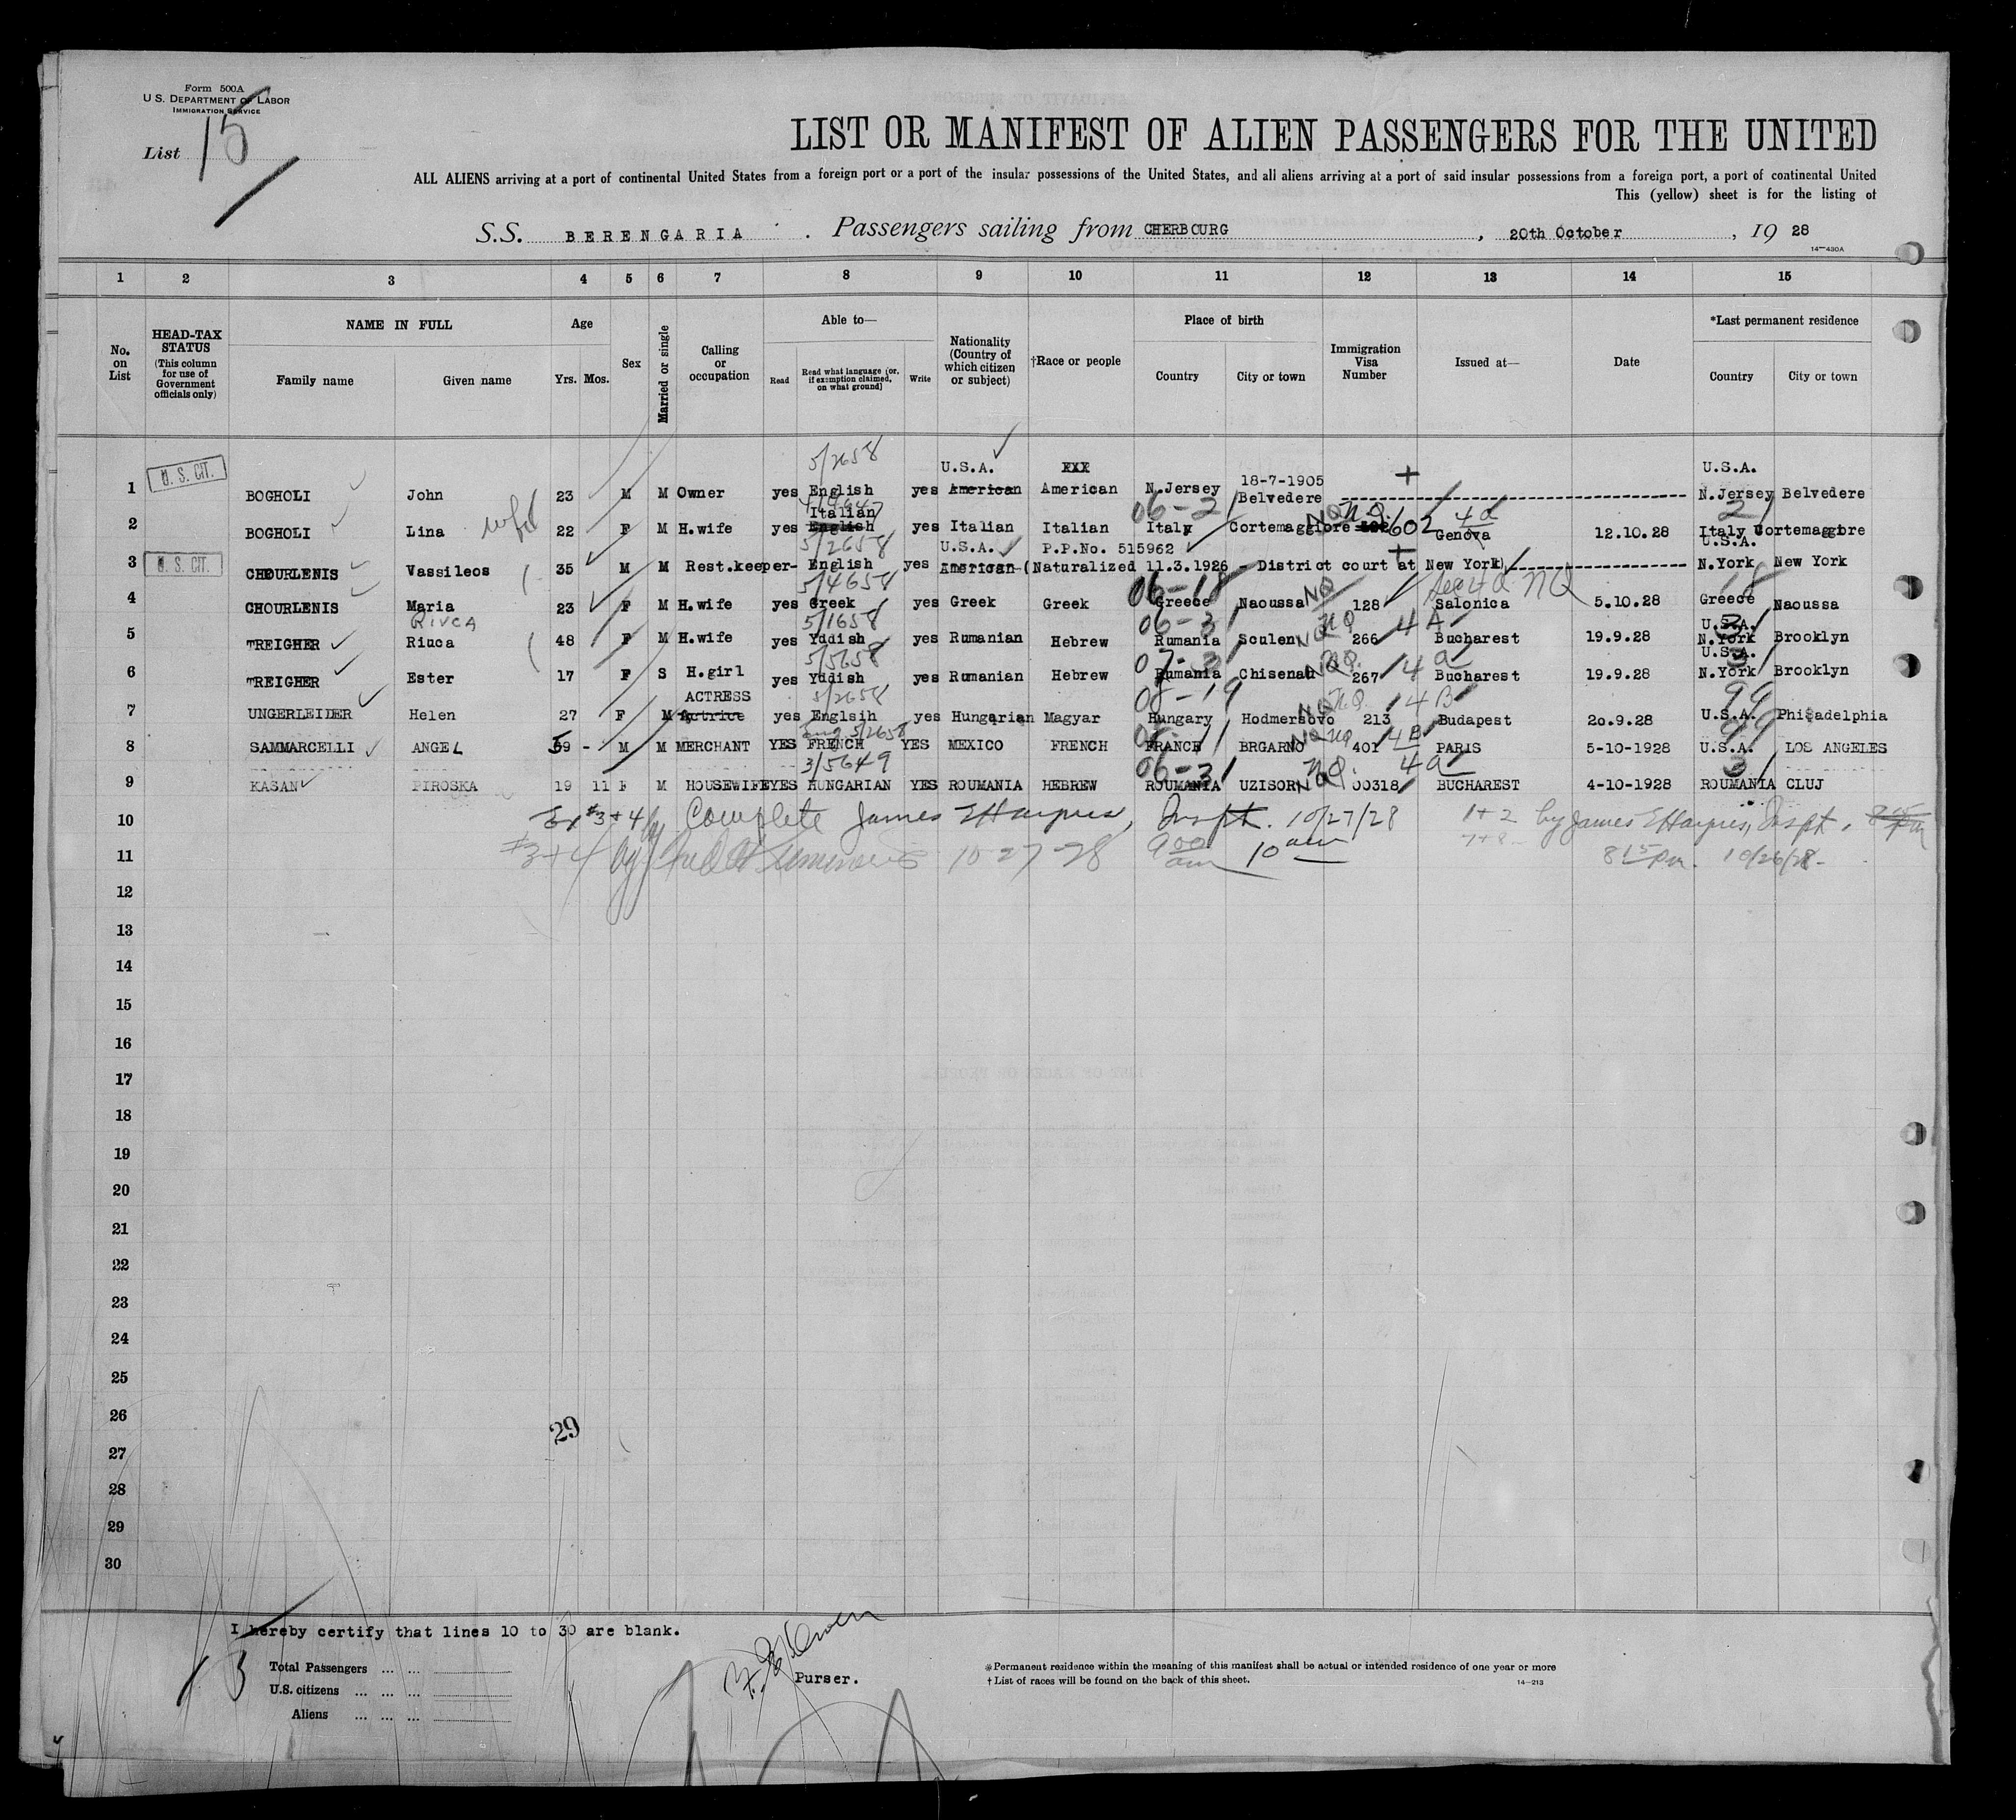 Form 500A
U. S. DEPARTMENT OF LABOR
IMMIGRATION SERVICE
List 15
LIST OR MANIFEST OF ALIEN PASSENGERS FOR THE UNITED
ALL ALIENS arriving at a port of continental United States from a foreign port or a port of the insular possessions of the United States, and all aliens arriving at a port of said insular possessions from a foreign port, a port of continental United
This (yellow) sheet is for the listing of
S.S. BERENGARIA. Passengers sailing from CHERBOURG, 20th October, 19 28
14—430A
1 2 3 4 5 6 7 8 9 10 11 12 13 14 15
No. on List
HEAD-TAX STATUS (This column for use of Government officials only)
NAME IN FULL
Family name Given name
Age
Yrs. Mos.
Sex
Married or single
Calling or occupation
Able to—
Read
Read what language [or, if exemption claimed, on what ground]
Write
Nationality (Country of which citizen or subject)
†Race or people
Place of birth
Country City or town
Immigration Visa Number
Issued at—
Date
*Last permanent residence
Country City or town
5/2658
U.S.A. XXX 18-7-1905 + U.S.A.
1 U. S. CIT. BOGHOLI John 23 M M Owner yes English yes American American N.Jersey Belvedere N.Jersey Belvedere
Italian 06-2 NQ 4a 2
2 BOGHOLI Lina wife 22 F M H.wife yes English yes Italian Italian Italy Cortemaggiore 602 Genova 12.10.28 Italy Cortemaggiore
5/2658 U.S.A. P.P.No. 515962 + U.S.A.
3 U. S. CIT. CHOURLENIS Vassileos 35 M M Rest.keeper- English yes American (Naturalized 11.3.1926 - District court at New York) N.York New York
5/4658 06-18 NQ NQ 18
4 CHOURLENIS Maria 23 F M H.wife yes Greek yes Greek Greek Greece Naoussa 128 Salonica 5.10.28 Greece Naoussa
RIVCA 5/1658 06-3 NQ 4A U.S.A.
5 TREIGHER Riuca 48 F M H.wife yes Yddish yes Rumanian Hebrew Rumania Sculen 266 Bucharest 19.9.28 N.York Brooklyn
5/5658 07-3 NQ 4a U.S.A.
6 TREIGHER Ester 17 F S H.girl yes Yddish yes Rumanian Hebrew Rumania Chisenau 267 Bucharest 19.9.28 N.York Brooklyn
ACTRESS 5/2658 08-19 NQ 4B 99
7 UNGERLEIDER Helen 27 F M Actrice yes Englsih yes Hungarian Magyar Hungary Hodmersovo 213 Budapest 20.9.28 U.S.A. Philadelphia
Eng 5/2658 NQ 4B 99
8 SAMMARCELLI ANGEL 59 - M M MERCHANT YES FRENCH YES MEXICO FRENCH FRANCE BRGARNO 401 PARIS 5-10-1928 U.S.A. LOS ANGELES
3/5649 06-3 NQ 4a 3
9 KASAN PIROSKA 19 11 F M HOUSEWIFE YES HUNGARIAN YES ROUMANIA HEBREW ROUMANIA UZISOR 00318 BUCHAREST 4-10-1928 ROUMANIA CLUJ
10 #3+4 by Complete James Inspt. 10/27/28 1+2 by James Inspt.
11 #3+4 by 10-27-28 9 00 am 10 am 7+8 8 15 pm. 10/26/28
12
13
14
15
16
17
18
19
20
21
22
23
24
25
26
29
27
28
29
30
I hereby certify that lines 10 to 30 are blank.
Total Passengers ... ...
U.S. citizens ... ... ...
Aliens ... ... ...
Purser.
*Permanent residence within the meaning of this manifest shall be actual or intended residence of one year or more
† List of races will be found on the back of this sheet.
14—213